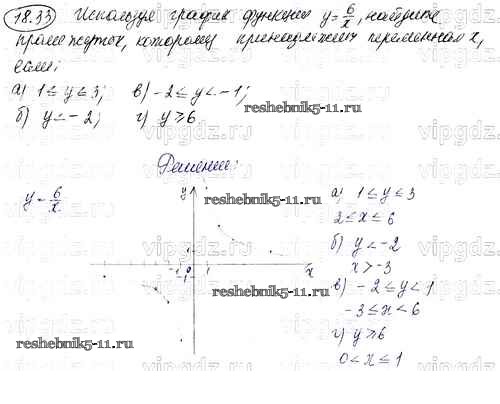 18.33 Используя график функции y=6/x, найдите
промежуток, которому принадлежит переменная x,
если:
а) 1≤y≤3; в) -2≤y<-1;
б) y<-2; г) y≥6
reshebnik5-11.ru
Решение:
y=6/x
y
reshebnik5-11.ru
-1 0 1 x
-1
reshebnik5-11.ru
reshebnik5-11.ru
а) 1≤y≤3
2≤x≤6
б) y<-2
x>-3
в) -2≤y<1
-3≤x<6
г) y≥6
0<x≤1
vipgdz.ru